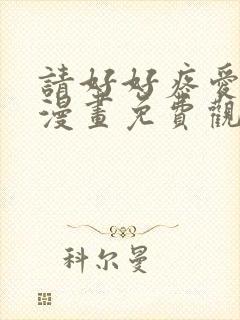 請好好疼愛
漫畫免費觀
科尔曼